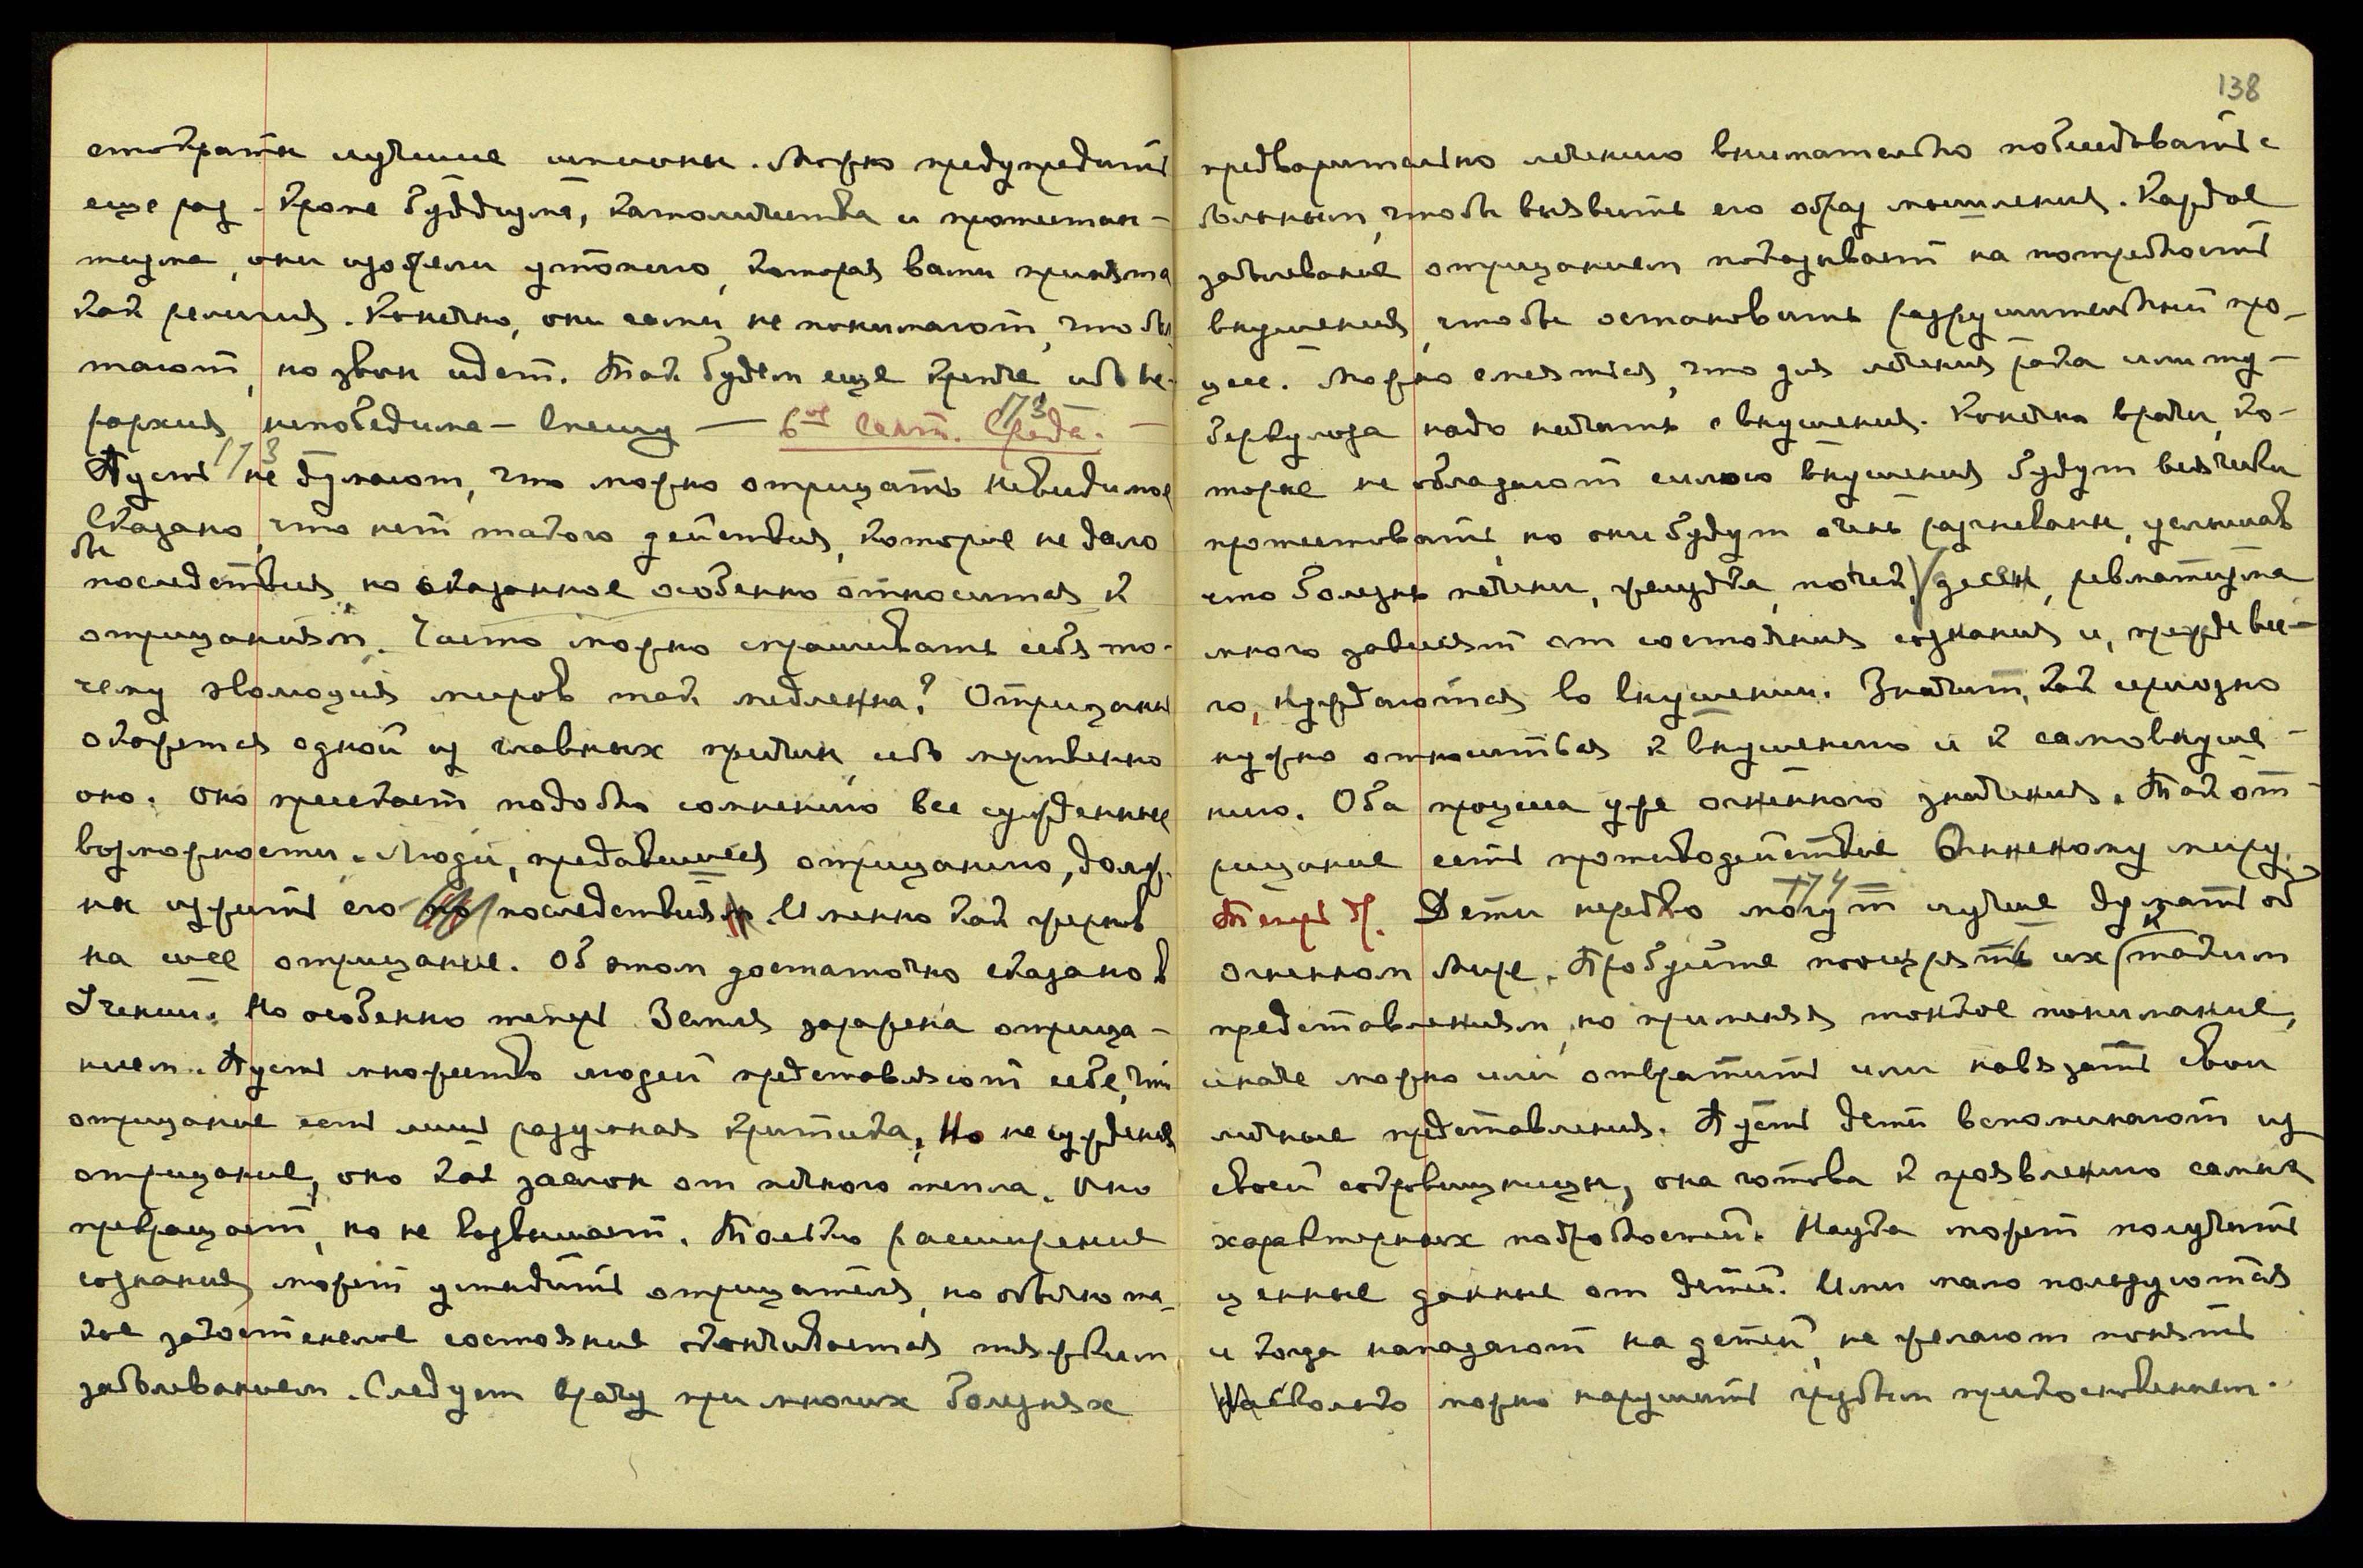 138
стократы лучшие шпионы. Можно предупредить
еще раз. Кроме буддизма, католичества и протестан-
тизма, они изобрели утопию, которая вами принята
как религия. Конечно, они сами не понимают, что бол-
тают, но звон идет. Так будем еще крепче, ибо Ие-
рархия непобедима – Спешу — 6ое Сент. Среда. –
173
173
Пусть не думают, что можно отрицать невидимое
Сказано, что нет такого действия, которое не дало
бы
последствия, но сказанное особенно относится к
отрицаниям. Часто можно спрашивать себя – по-
чему эволюция миров так медленна? Отрицание
окажется одной из главных причин, ибо мертвенно
оно. Оно пресекает подобно сомнению все сужденные
возможности. Люди, предавшиеся отрицанию, долж-
ны изжить его последствия. Именно как жернов
на шее отрицание. Об этом достаточно сказано в
Учении. Но особенно теперь Земля заражена отрица-
нием. Пусть множество людей представляют себе, что
отрицание есть лишь разумная критика, Но не суждения
отрицание, оно как заслон от печного тепла. Оно
прекращает, но не возвышает. Только расширение
сознания может устыдить отрицателя, но обычно та-
кое закостенелое состояние оканчивается тяжким
заболеванием. Следует врачу при многих болезнях
предварительно лечению внимательно побеседовать с
больным, чтобы выявить его образ мышления. Каждое
заболевание отрицанием показывает на потребность
внушения, чтобы остановить разрушительный про-
цесс. Можно смеяться, что для лечения рака или ту-
беркулоза надо начать с внушения. Конечно врачи, ко-
торые не обладают силою внушения будут всячески
протестовать, но они будут очень разгневаны, услышав
что болезнь печени, желудка, почек, десен, ревматизма
много зависят от состояния сознания и, прежде все-
го, нуждаются во внушении. Значит, как серьозно
нужно относиться к внушению и к самовнуше-
нию. Оба процесса уже огненного значения. Так от-
рицание есть противодействие Огненному миру.
174
Теперь др. Дети нередко могут лучше думать об
огненном Мире. Пробуйте поощрять их к таким
представлениям, но применяя тонкое понимание,
иначе можно или отвратить или навязать свои
личные представления. Пусть дети вспоминают из
своей сокровищницы, она готова к проявлению самых
характерных подробностей. Наука может получить
ценные данные от детей. Ими мало пользуются
и когда нападают на детей, не желают понять
насколько можно нарушить грубым прикосновением.